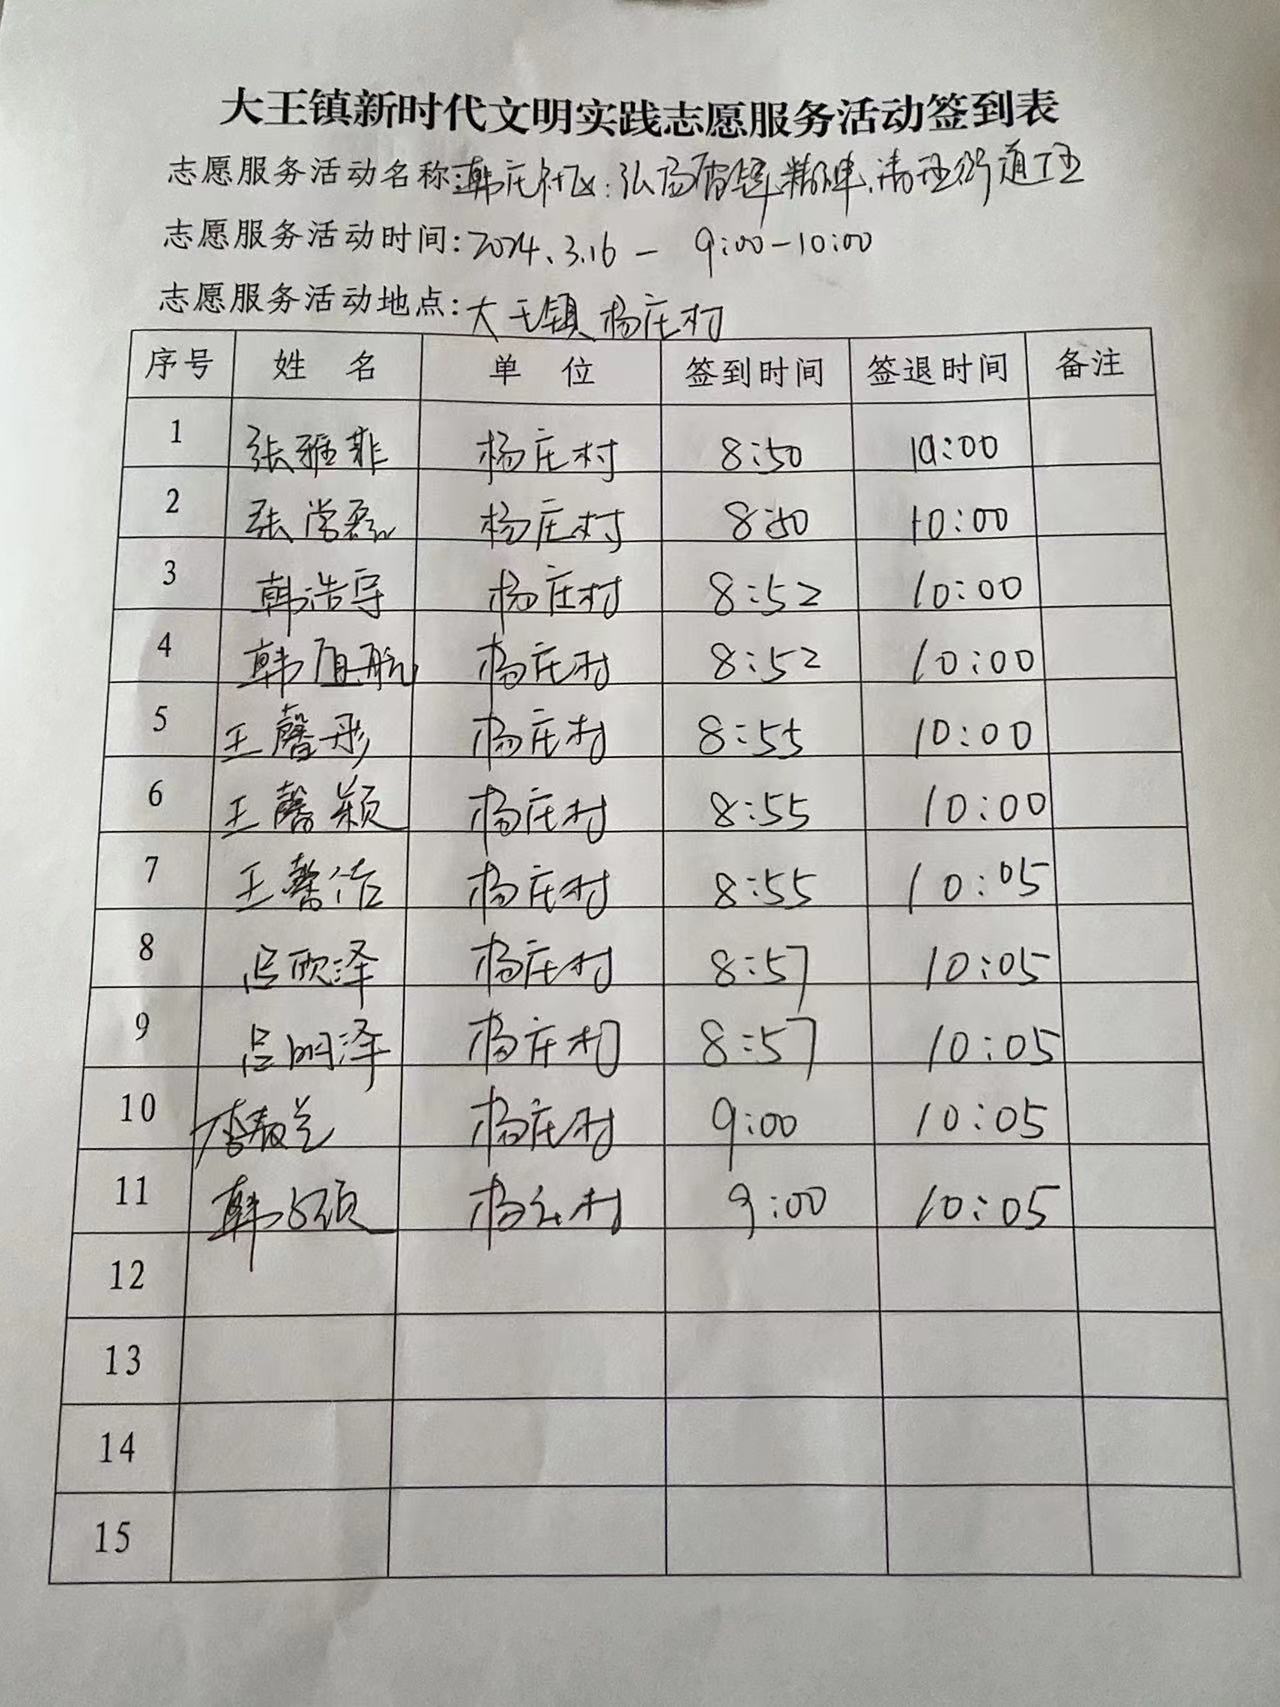 大王镇新时代文明实践志愿服务活动签到表
志愿服务活动名称:韩庄社区:弘扬雷锋精神,清理街道卫生
志愿服务活动时间:2024.3.16 - 9:00-10:00
志愿服务活动地点:大王镇杨庄村
序号 姓名 单位 签到时间 签退时间 备注
1 张雅菲 杨庄村 8:50 10:00
2 张常磊 杨庄村 8:50 10:00
3 韩浩宇 杨庄村 8:52 10:00
4 韩 航 杨庄村 8:52 10:00
5 王馨彤 杨庄村 8:55 10:00
6 王馨颖 杨庄村 8:55 10:00
7 王馨 杨庄村 8:55 10:05
8 吕欣泽 杨庄村 8:57 10:05
9 吕明泽 杨庄村 8:57 10:05
10 李 杨庄村 9:00 10:05
11 韩 杨庄村 9:00 10:05
12
13
14
15